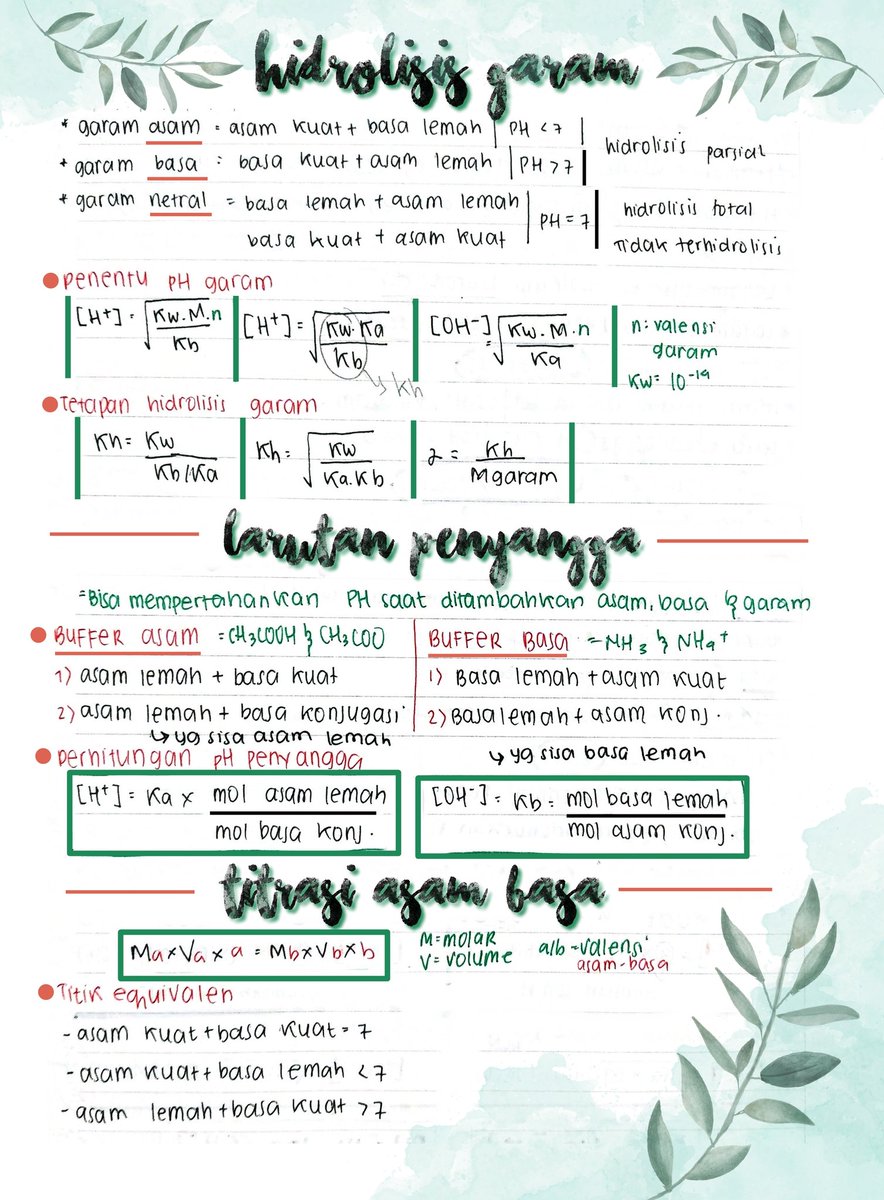 hidrolisis garam
* garam asam = asam kuat + basa lemah | PH < 7 | hidrolisis parsial
* garam basa = basa kuat + asam lemah | PH > 7
* garam netral = basa lemah + asam lemah | PH = 7 | hidrolisis total
basa kuat + asam kuat | tidak terhidrolisis
• penentu pH garam
[H+] = √(Kw.M.n / Kb)
[H+] = √(Kw.Ka / Kb) → Kh
[OH-] = √(Kw.M.n / Ka)
n: valensi garam
Kw = 10⁻¹⁴
• Tetapan hidrolisis garam
Kh = Kw / Kb/Ka
Kh = √(Kw / Ka.Kb)
2 = Kh / M garam
larutan penyangga
= Bisa mempertahankan PH saat ditambahkan asam, basa & garam
• BUFFER asam = CH3COOH & CH3COO
1) asam lemah + basa kuat
2) asam lemah + basa konjugasi
↳ yg sisa asam lemah
BUFFER Basa = NH3 & NH4+
1) Basa lemah + asam kuat
2) Basa lemah + asam konj.
↳ yg sisa basa lemah
• perhitungan pH penyangga
[H+] = Ka x mol asam lemah / mol basa konj.
[OH-] = Kb = mol basa lemah / mol asam konj.
titrasi asam basa
Ma x Va x a = Mb x Vb x b
M = molar
V = volume
a/b = valensi
asam-basa
• Titik equivalen
- asam kuat + basa kuat = 7
- asam kuat + basa lemah < 7
- asam lemah + basa kuat > 7